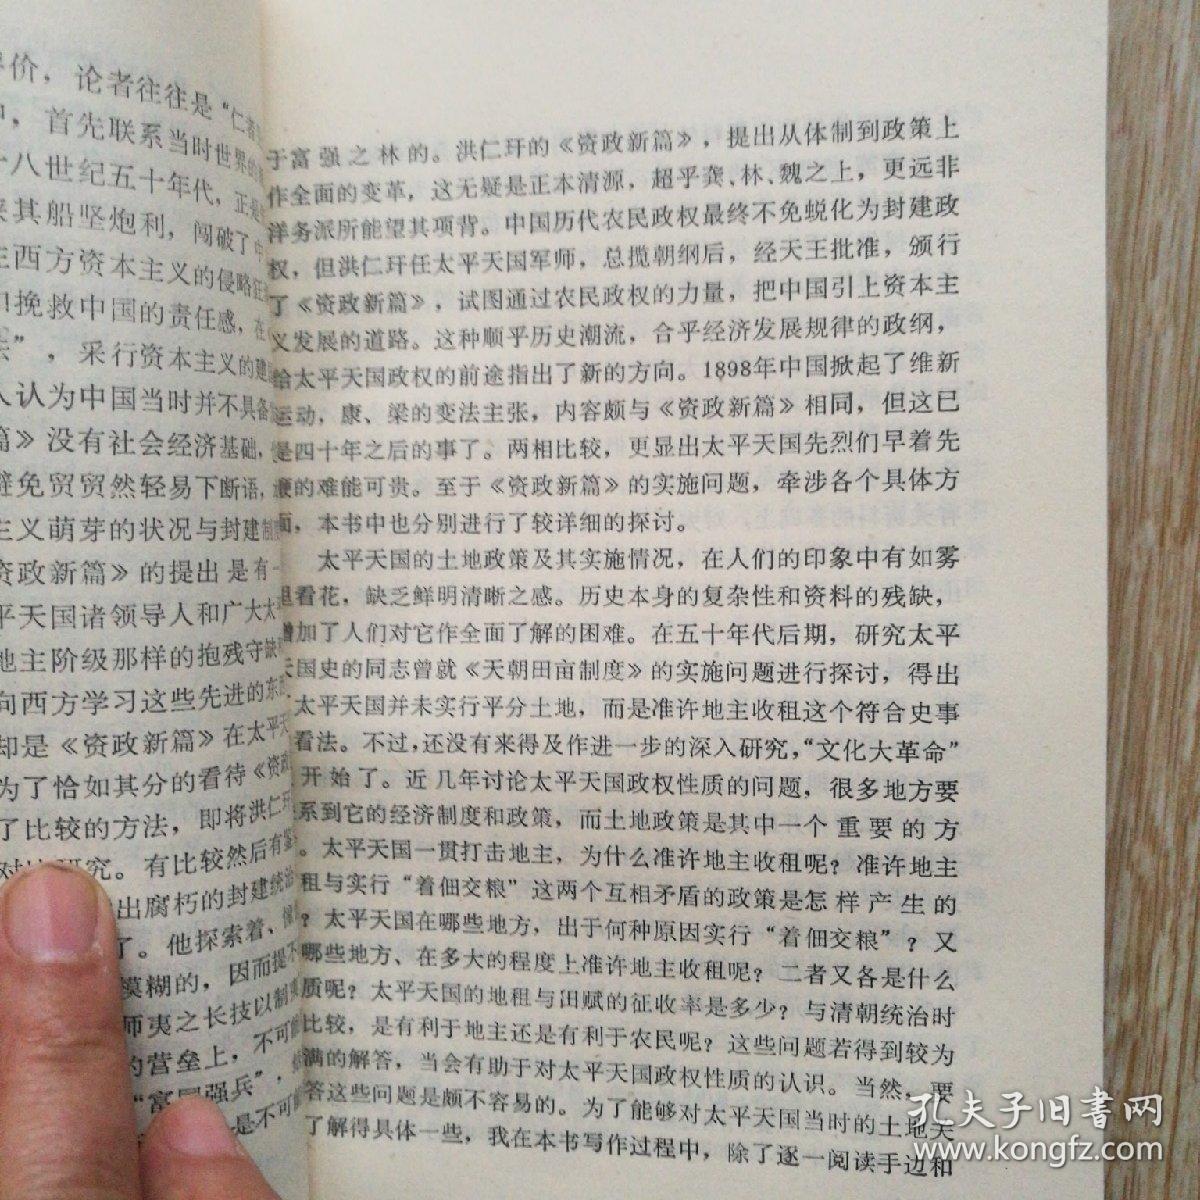 价，论者往往是“仁
，首先联系当时世界的
十八世纪五十年代，正是
其船坚炮利，闯破了中
西方资本主义的侵略狂
挽救中国的责任感，在
”，采行资本主义的建
人认为中国当时并不具备
篇》没有社会经济基础，
避免贸贸然轻易下断语，
主义萌芽的状况与封建制
资政新篇》的提出是有一
平天国诸领导人和广大太
地主阶级那样的抱残守缺
向西方学习这些先进的东
却是《资政新篇》在太平天
为了恰如其分的看待《资政
了比较的方法，即将洪仁玕
对 研究。有比较然后有鉴
出腐朽的封建统治
了。他探索着、
模糊的，因而提不
师夷之长技以制
的营垒上，不可能
“富国强兵”，
是不可能
于富强之林的。洪仁玕的《资政新篇》，提出从体制到政策上
作全面的变革，这无疑是正本清源，超乎龚、林、魏之上，更远非
洋务派所能望其项背。中国历代农民政权最终不免蜕化为封建政
权，但洪仁玕任太平天国军师，总揽朝纲后，经天王批准，颁行
了《资政新篇》，试图通过农民政权的力量，把中国引上资本主
义发展的道路。这种顺乎历史潮流，合乎经济发展规律的政纲，
给太平天国政权的前途指出了新的方向。1898年中国掀起了维新
运动，康、梁的变法主张，内容颇与《资政新篇》相同，但这已
是四十年之后的事了。两相比较，更显出太平天国先烈们早着先
鞭的难能可贵。至于《资政新篇》的实施问题，牵涉各个具体方
面，本书中也分别进行了较详细的探讨。
太平天国的土地政策及其实施情况，在人们的印象中有如雾
里看花，缺乏鲜明清晰之感。历史本身的复杂性和资料的残缺，
增加了人们对它作全面了解的困难。在五十年代后期，研究太平
天国史的同志曾就《天朝田亩制度》的实施问题进行探讨，得出
太平天国并未实行平分土地，而是准许地主收租这个符合史事
看法。不过，还没有来得及作进一步的深入研究，“文化大革命”
开始了。近几年讨论太平天国政权性质的问题，很多地方要
系到它的经济制度和政策，而土地政策是其中一个重要的方
。太平天国一贯打击地主，为什么准许地主收租呢？准许地主
租与实行“着佃交粮”这两个互相矛盾的政策是怎样产生的
？太平天国在哪些地方，出于何种原因实行“着佃交粮”？又
哪些地方、在多大的程度上准许地主收租呢？二者又各是什么
质呢？太平天国的地租与田赋的征收率是多少？与清朝统治时
比较，是有利于地主还是有利于农民呢？这些问题若得到较为
满的解答，当会有助于对太平天国政权性质的认识。当然，要
答这些问题是颇不容易的。为了能够对太平天国当时的土地关
了解得具体一些，我在本书写作过程中，除了逐一阅读手边和
孔夫子旧书网
www.kongfz.com